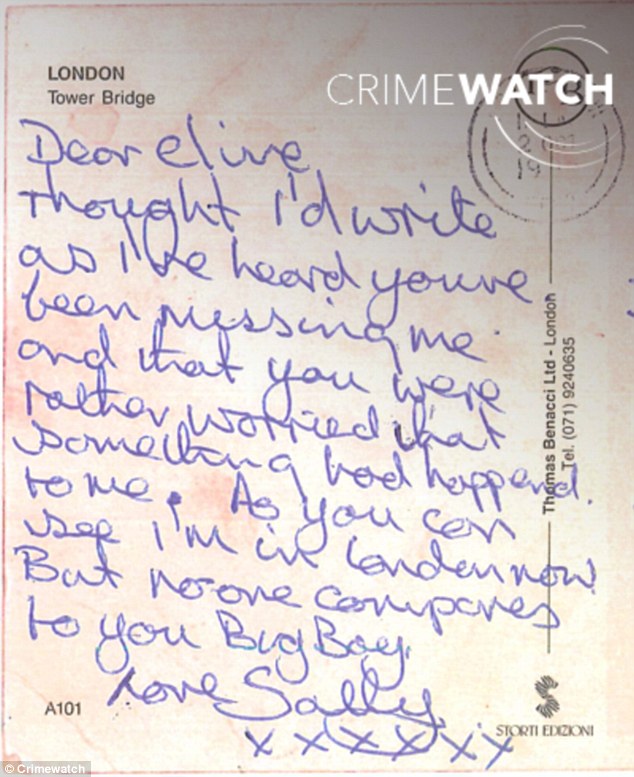 LONDON
Tower Bridge
CRIMEWATCH
Dear Clive
Thought I'd write
as I've heard youve
been missing me
and that you were
rather worried that
something had happend
to me. As you can
see I'm in London now
But no-one compares
to you Big Boy
Love Sally
x x x x x x
Thomas Benacci Ltd - London
Tel. (071) 9240635
A101
STORTI EDIZIONI
© Crimewatch